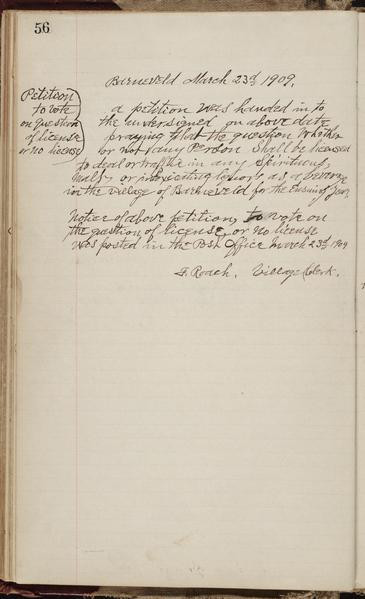 56
Barneveld March 23d, 1909.
Petition
to vote
on question
of license
or no license
a petition was handed in to
the undersigned on above date
praying that the question whether
or not any Person shall be licensed
to deal or traffic in any Spirituous,
Malt, or intoxicating liquors, as a beverage
in the village of Barneveld for the Ensuing Year.
Notice of above petition, to vote on
the question of license, or no license
was posted in the Post Office March 23d 1909
F. Roach, Village Clerk.